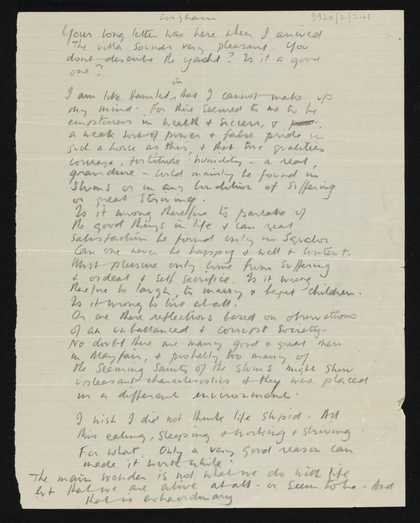 Your long letter was here when I arrived
The villa sounds very pleasant. You
dont describe the yacht? Is it a good
one?
in
I am like Hamlet, that I cannot make up
my mind. For there seemed to me to be
emptiness in wealth & success, &
a weak sort of power & false pride in
such a house as this, & that true qualities
courage, fortitude humility – a real,
grandeur – could mainly be found in
Slums or in any condition of suffering
or great
Is it wrong therefore to partake of
the good things in life & can real
satisfaction be found only in Squalor
Can one never be happy & well & content.
Must pleasure only come from suffering
& ordeal & self sacrifice. Is it wrong
therefore to laugh, to marry & beget children.
Is it wrong to live at all.
Or are these reflections based on observations
of an unbalanced & corrupt society.
No doubt there are many good & great men
in Mayfair, & probably too many of
the seeming Saints of the slums might show
unpleasant characteristics if they were placed
in a different environment.
I wish I did not think life stupid. All
this eating, sleeping & working & striving.
For what. Only a very good reason can
made it worth while.
The main wonder is not what we do with life
but that we are alive at all – or seem to be. And
that is extraordinary